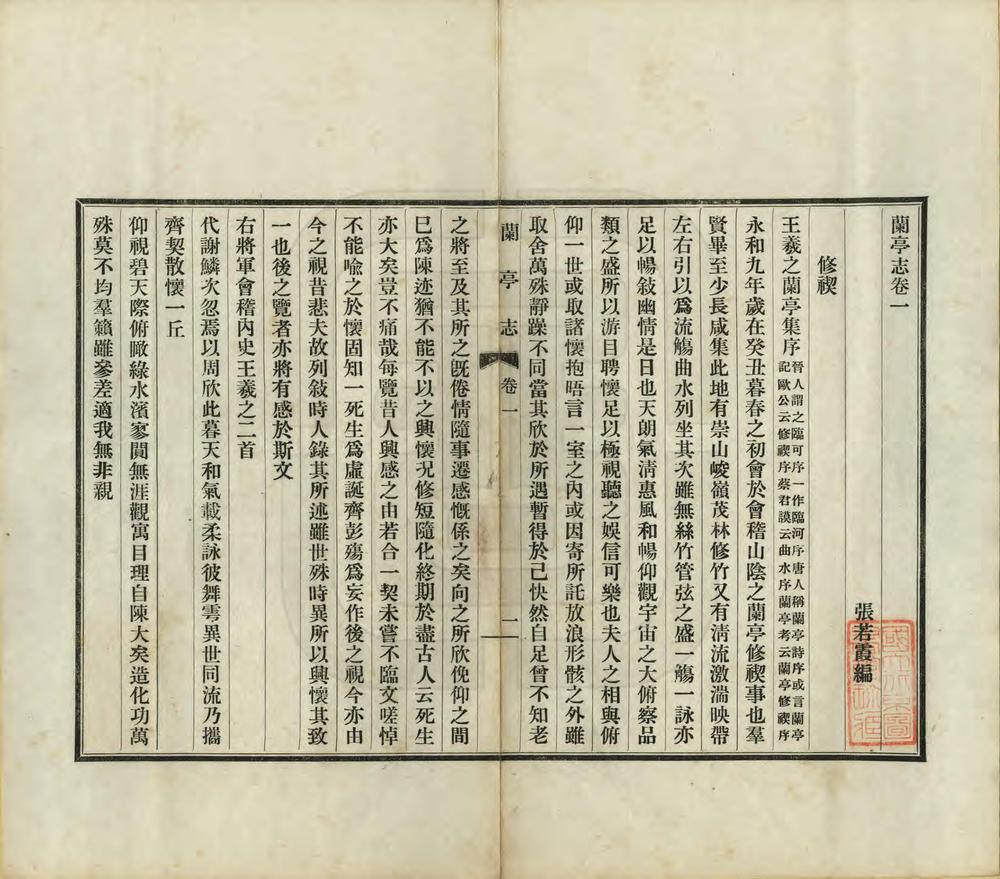 蘭亭志卷一
張若霞編
修禊
王羲之蘭亭集序晉人謂之臨河序一作臨河序唐人稱蘭亭詩序或言蘭亭
記歐公云修禊序蔡君謨云曲水序蘭亭考云蘭亭修禊序
永和九年歲在癸丑暮春之初會於會稽山陰之蘭亭修禊事也羣
賢畢至少長咸集此地有崇山峻嶺茂林修竹又有淸流激湍映帶
左右引以爲流觴曲水列坐其次雖無絲竹管弦之盛一觴一詠亦
足以暢敍幽情是日也天朗氣淸惠風和暢仰觀宇宙之大俯察品
類之盛所以游目聘懷足以極視聽之娛信可樂也夫人之相與俯
仰一世或取諸懷抱晤言一室之內或因寄所託放浪形骸之外雖
取舍萬殊靜躁不同當其欣於所遇暫得於己快然自足曾不知老
蘭亭志 卷一 一
之將至及其所之旣倦情隨事遷感慨係之矣向之所欣俛仰之間
已爲陳迹猶不能不以之興懷况修短隨化終期於盡古人云死生
亦大矣豈不痛哉每覽昔人興感之由若合一契未嘗不臨文嗟悼
不能喩之於懷固知一死生爲虛誕齊彭殤爲妄作後之視今亦由
今之視昔悲夫故列敍時人錄其所述雖世殊時異所以興懷其致
一也後之覽者亦將有感於斯文
右將軍會稽內史王羲之二首
代謝鱗次忽焉以周欣此暮天和氣載柔詠彼舞雩異世同流乃攜
齊契散懷一丘
仰視碧天際俯瞰綠水濱寥闃無涯觀寓目理自陳大矣造化功萬
殊莫不均羣籟雖參差適我無非親